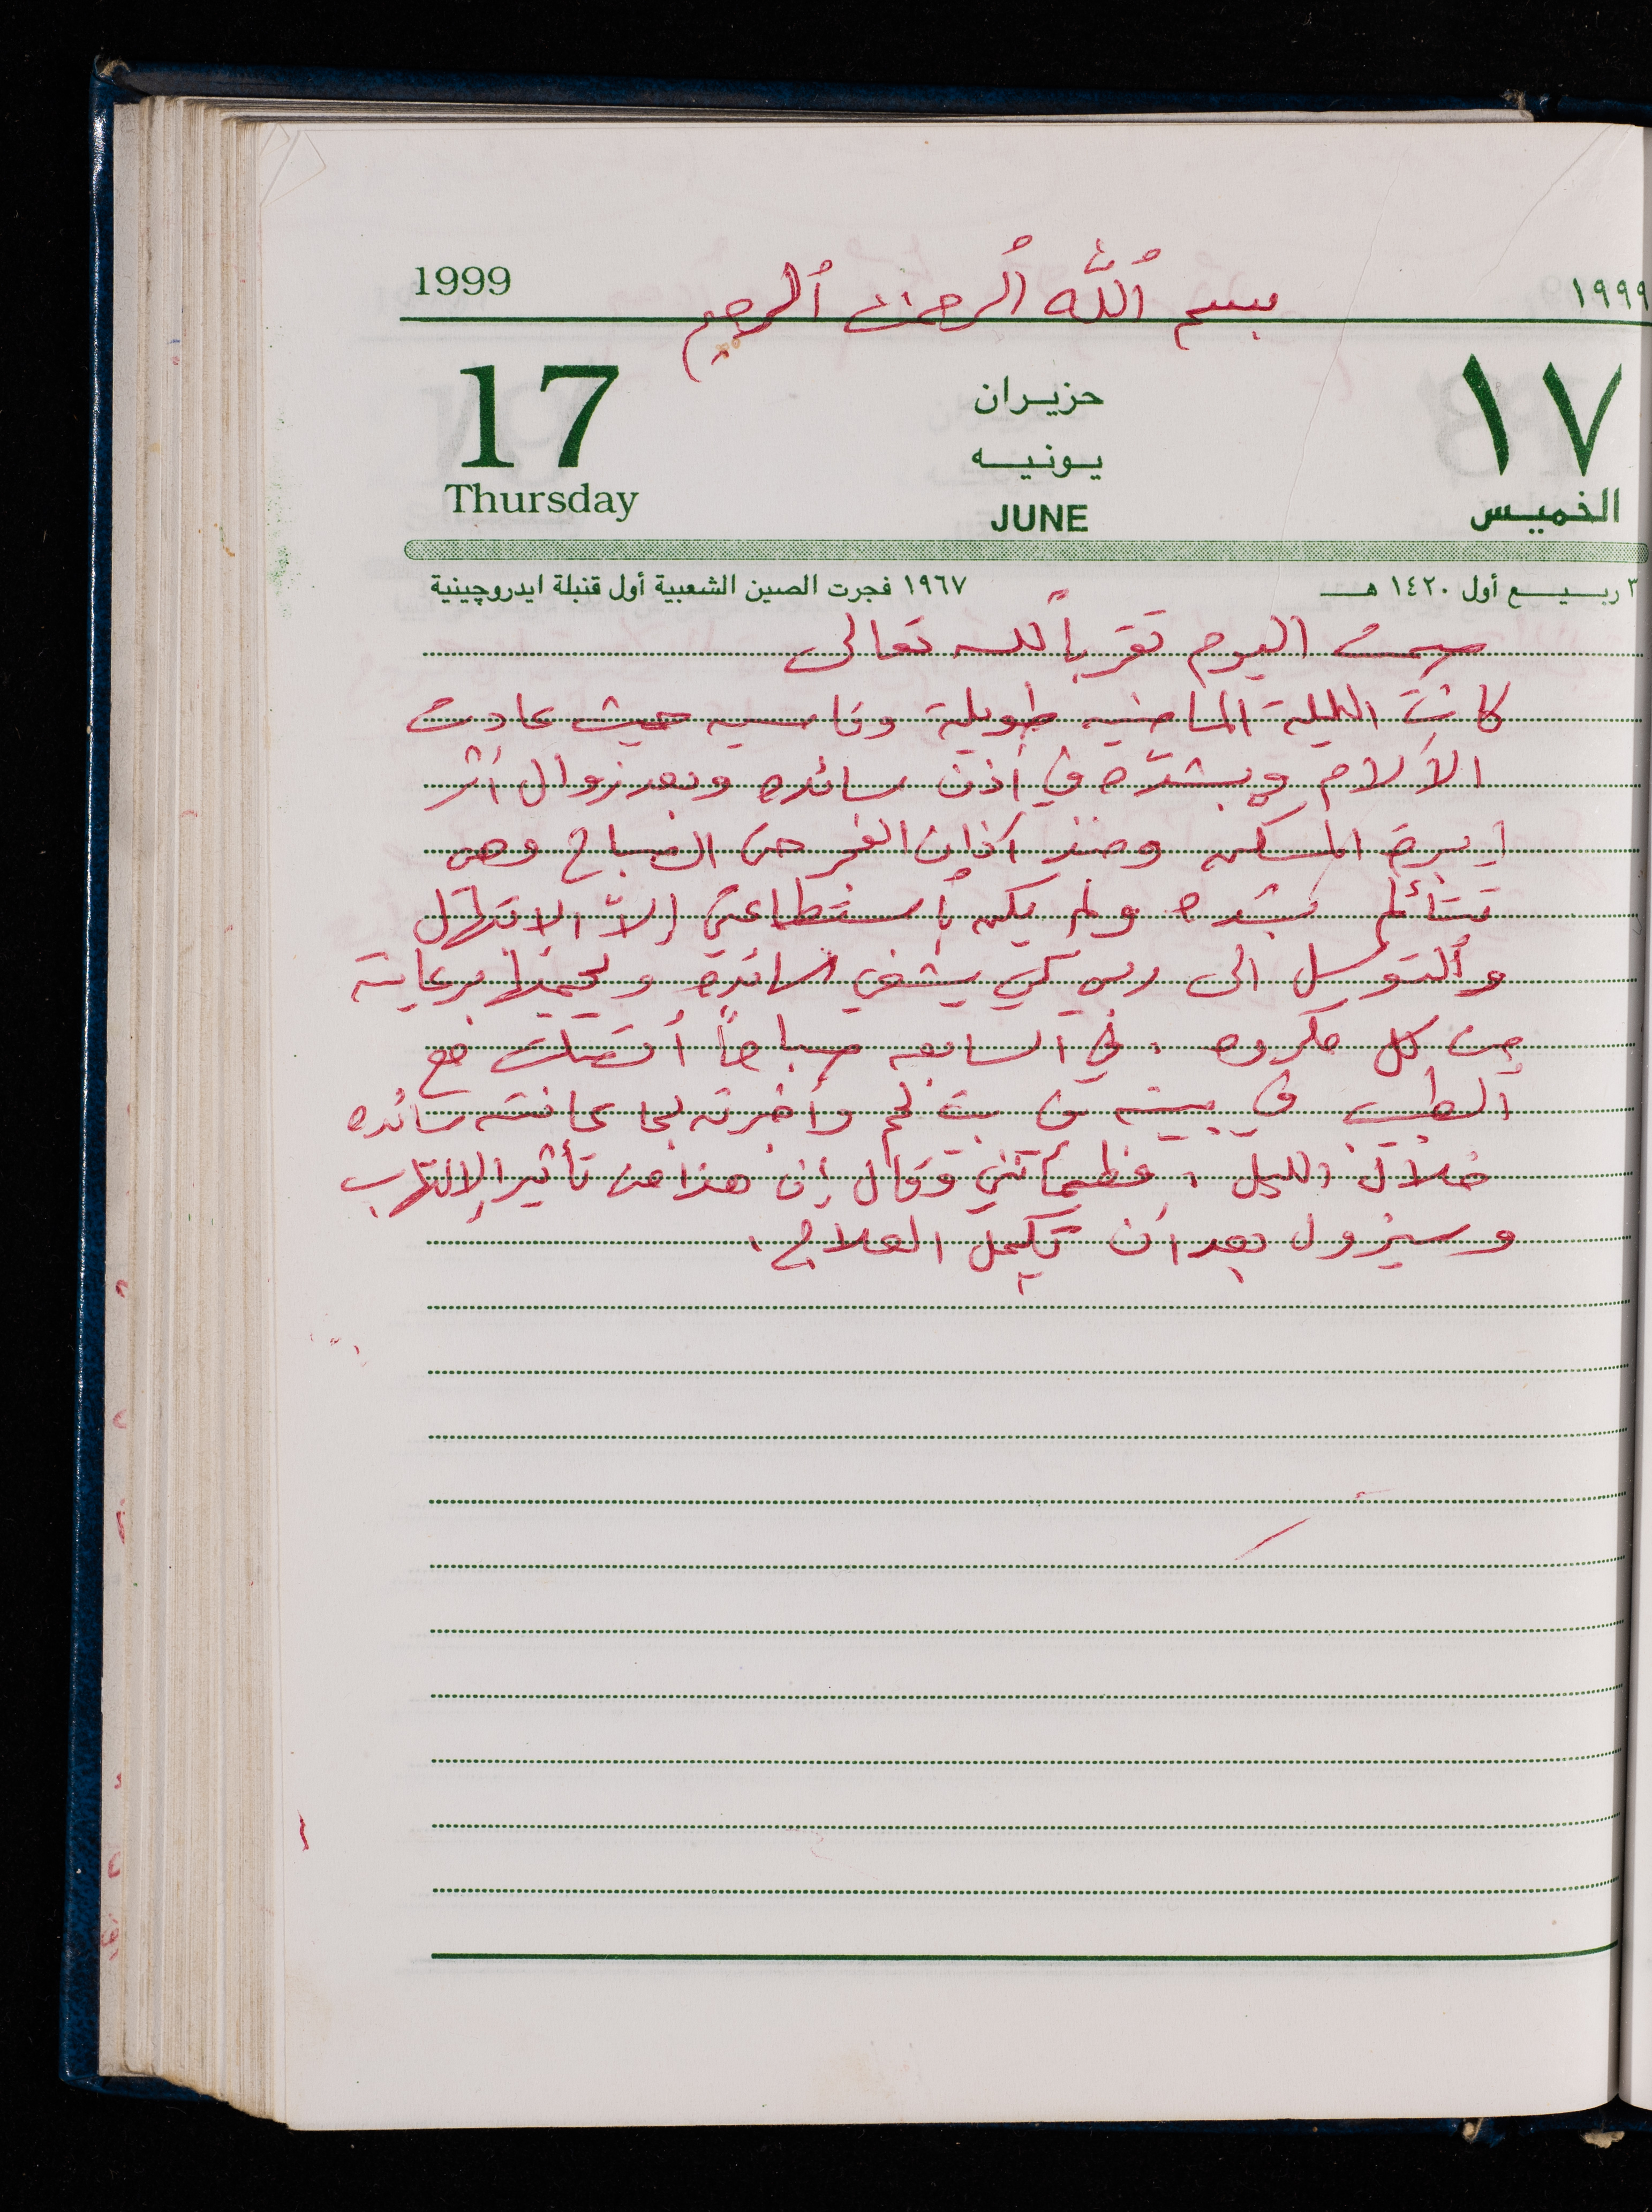 1999 بسم ٱللّه ٱلرحمن ٱلرحيم ١٩٩٩
17 حزيران ١٧
يونيه
Thursday JUNE الخميس
٣ ربيع أول ١٤٢٠ هـ ١٩٦٧ فجرت الصين الشعبية أول قنبلة ايدروچينية
صمت اليوم تقرباً لله تعالى
كانت الليلة الماضيه طويلة وقاسيه حيث عادت
الآلام وبشدّه في أذن سائده وبعد زوال أثر
ابرة المسكن ومنذ آذان الفجر حتى الصباح وهي
تتألم بشده ولم يكن بأستطاعتي إلاّ الابتهال
وٱلتوسل الى ربي كي يشفي سائده ويحميها برعايته
من كل مكروه . في السابعه صباحاً أتصلت مع
الطبيب في بيته في بيت لحم وأخبرته بما عانته سائده
خلال الليل ، فطمأنني وقال إن هذا من تأثير الإلتهاب
وسيزول بعد أن تكمل العلاج .